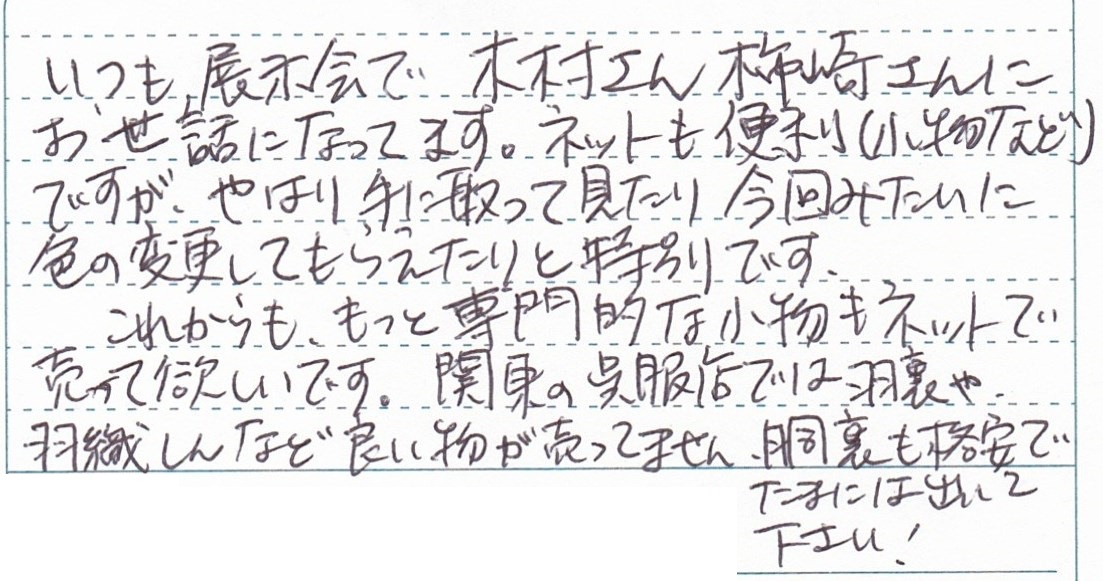 いつも、展示会で 木村さん 柿崎さんに
お世話になってます。ネットも便利(小物など)
ですが、やはり手に取って見たり 今回みたいに
色の変更してもらえたりと特別です。
これからも、もっと専門的な小物もネットで
売って欲しいです。関東の呉服店では羽裏や、
羽織しんなど良い物が売ってません、胴裏も格安で
たまには出して
下さい！